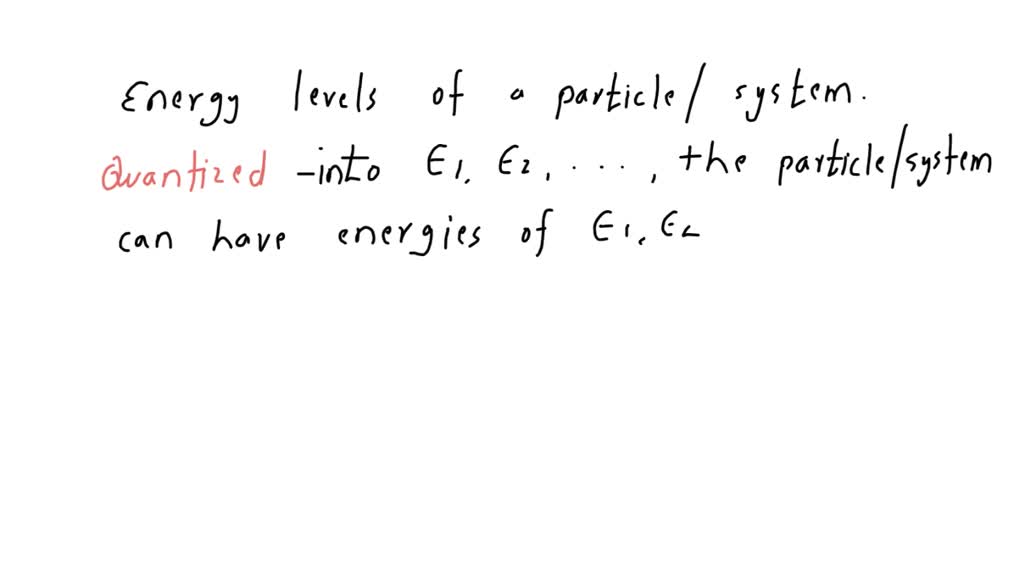 Energy levels of a particle/ system.
Quantized -into E1, E2, ..., the particle/system
can have energies of E1, E2